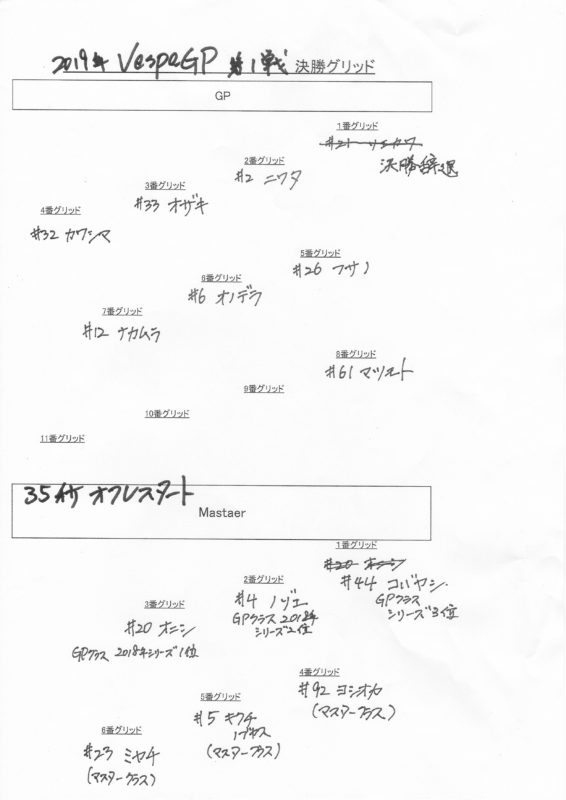 2019年 VespaGP 第1戦 決勝グリッド
GP
1番グリッド
決勝辞退
2番グリッド
#2 ニワタ
3番グリッド
#33 オザキ
4番グリッド
#32 カワシマ
5番グリッド
#26 フサノ
6番グリッド
#6 オノデラ
7番グリッド
#12 ナカムラ
8番グリッド
#61 マツモト
9番グリッド
10番グリッド
11番グリッド
35秒 オクレスタート
Mastaer
1番グリッド
#20 オニシ
#44 コバヤシ
GPクラス
シリーズ3位
2番グリッド
#4 ノゾエ
GPクラス 2018年
シリーズ2位
3番グリッド
#20 オニシ
GPクラス 2018年シリーズ1位
4番グリッド
#92 ヨシオカ
(マスタークラス)
5番グリッド
#5 キクチ
ノブヤス
(マスタークラス)
6番グリッド
#23 ミヤチ
(マスタークラス)